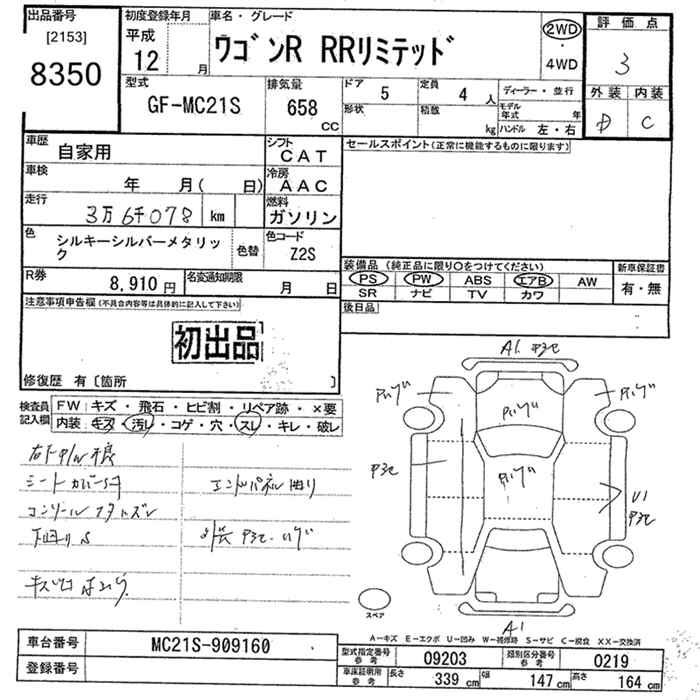 出品番号
[2153]
8350
初度登録年月
平成
12 月
車名・グレード
ワゴンR RRリミテッド
2WD
・
4WD
評価点
3
外装 内装
D C
型式
GF-MC21S
排気量
658
CC
ドア
5
定員
4 人
形状
積載
kg
ディーラー・並行
モデル年式 年
ハンドル 左・右
車歴
自家用
シフト
CAT
車検
年 月( 日)
冷房
AAC
走行
3万6千078 km
燃料
ガソリン
色
シルキーシルバーメタリック
色替
色コード
Z2S
R券
8,910 円
名変通知期限
月 日
セールスポイント(正常に機能するものに限ります)
装備品(純正品に限り○をつけてください)
PS PW ABS エアB AW
SR ナビ TV カワ
新車保証書
有・無
後日品
注意事項申告欄(不具合内容等は具体的に記入して下さい)
初出品
修復歴 有〔箇所 〕
検査員記入欄
FW キズ・飛石・ヒビ割・リペア跡・×要
内装 キズ・汚レ・コゲ・穴・スレ・キレ・破レ
シートカバー
エンドパネル曲り
コンソール
A1
A1
U1
スペア
A-キズ E-エクボ U-凹み W-補修跡 S-サビ C-腐食 XX-交換済
車台番号
MC21S-909160
登録番号
型式指定番号 参考
09203
類別区分番号 参考
0219
車庫証明用 参考
長さ 339 cm 幅 147 cm 高さ 164 cm